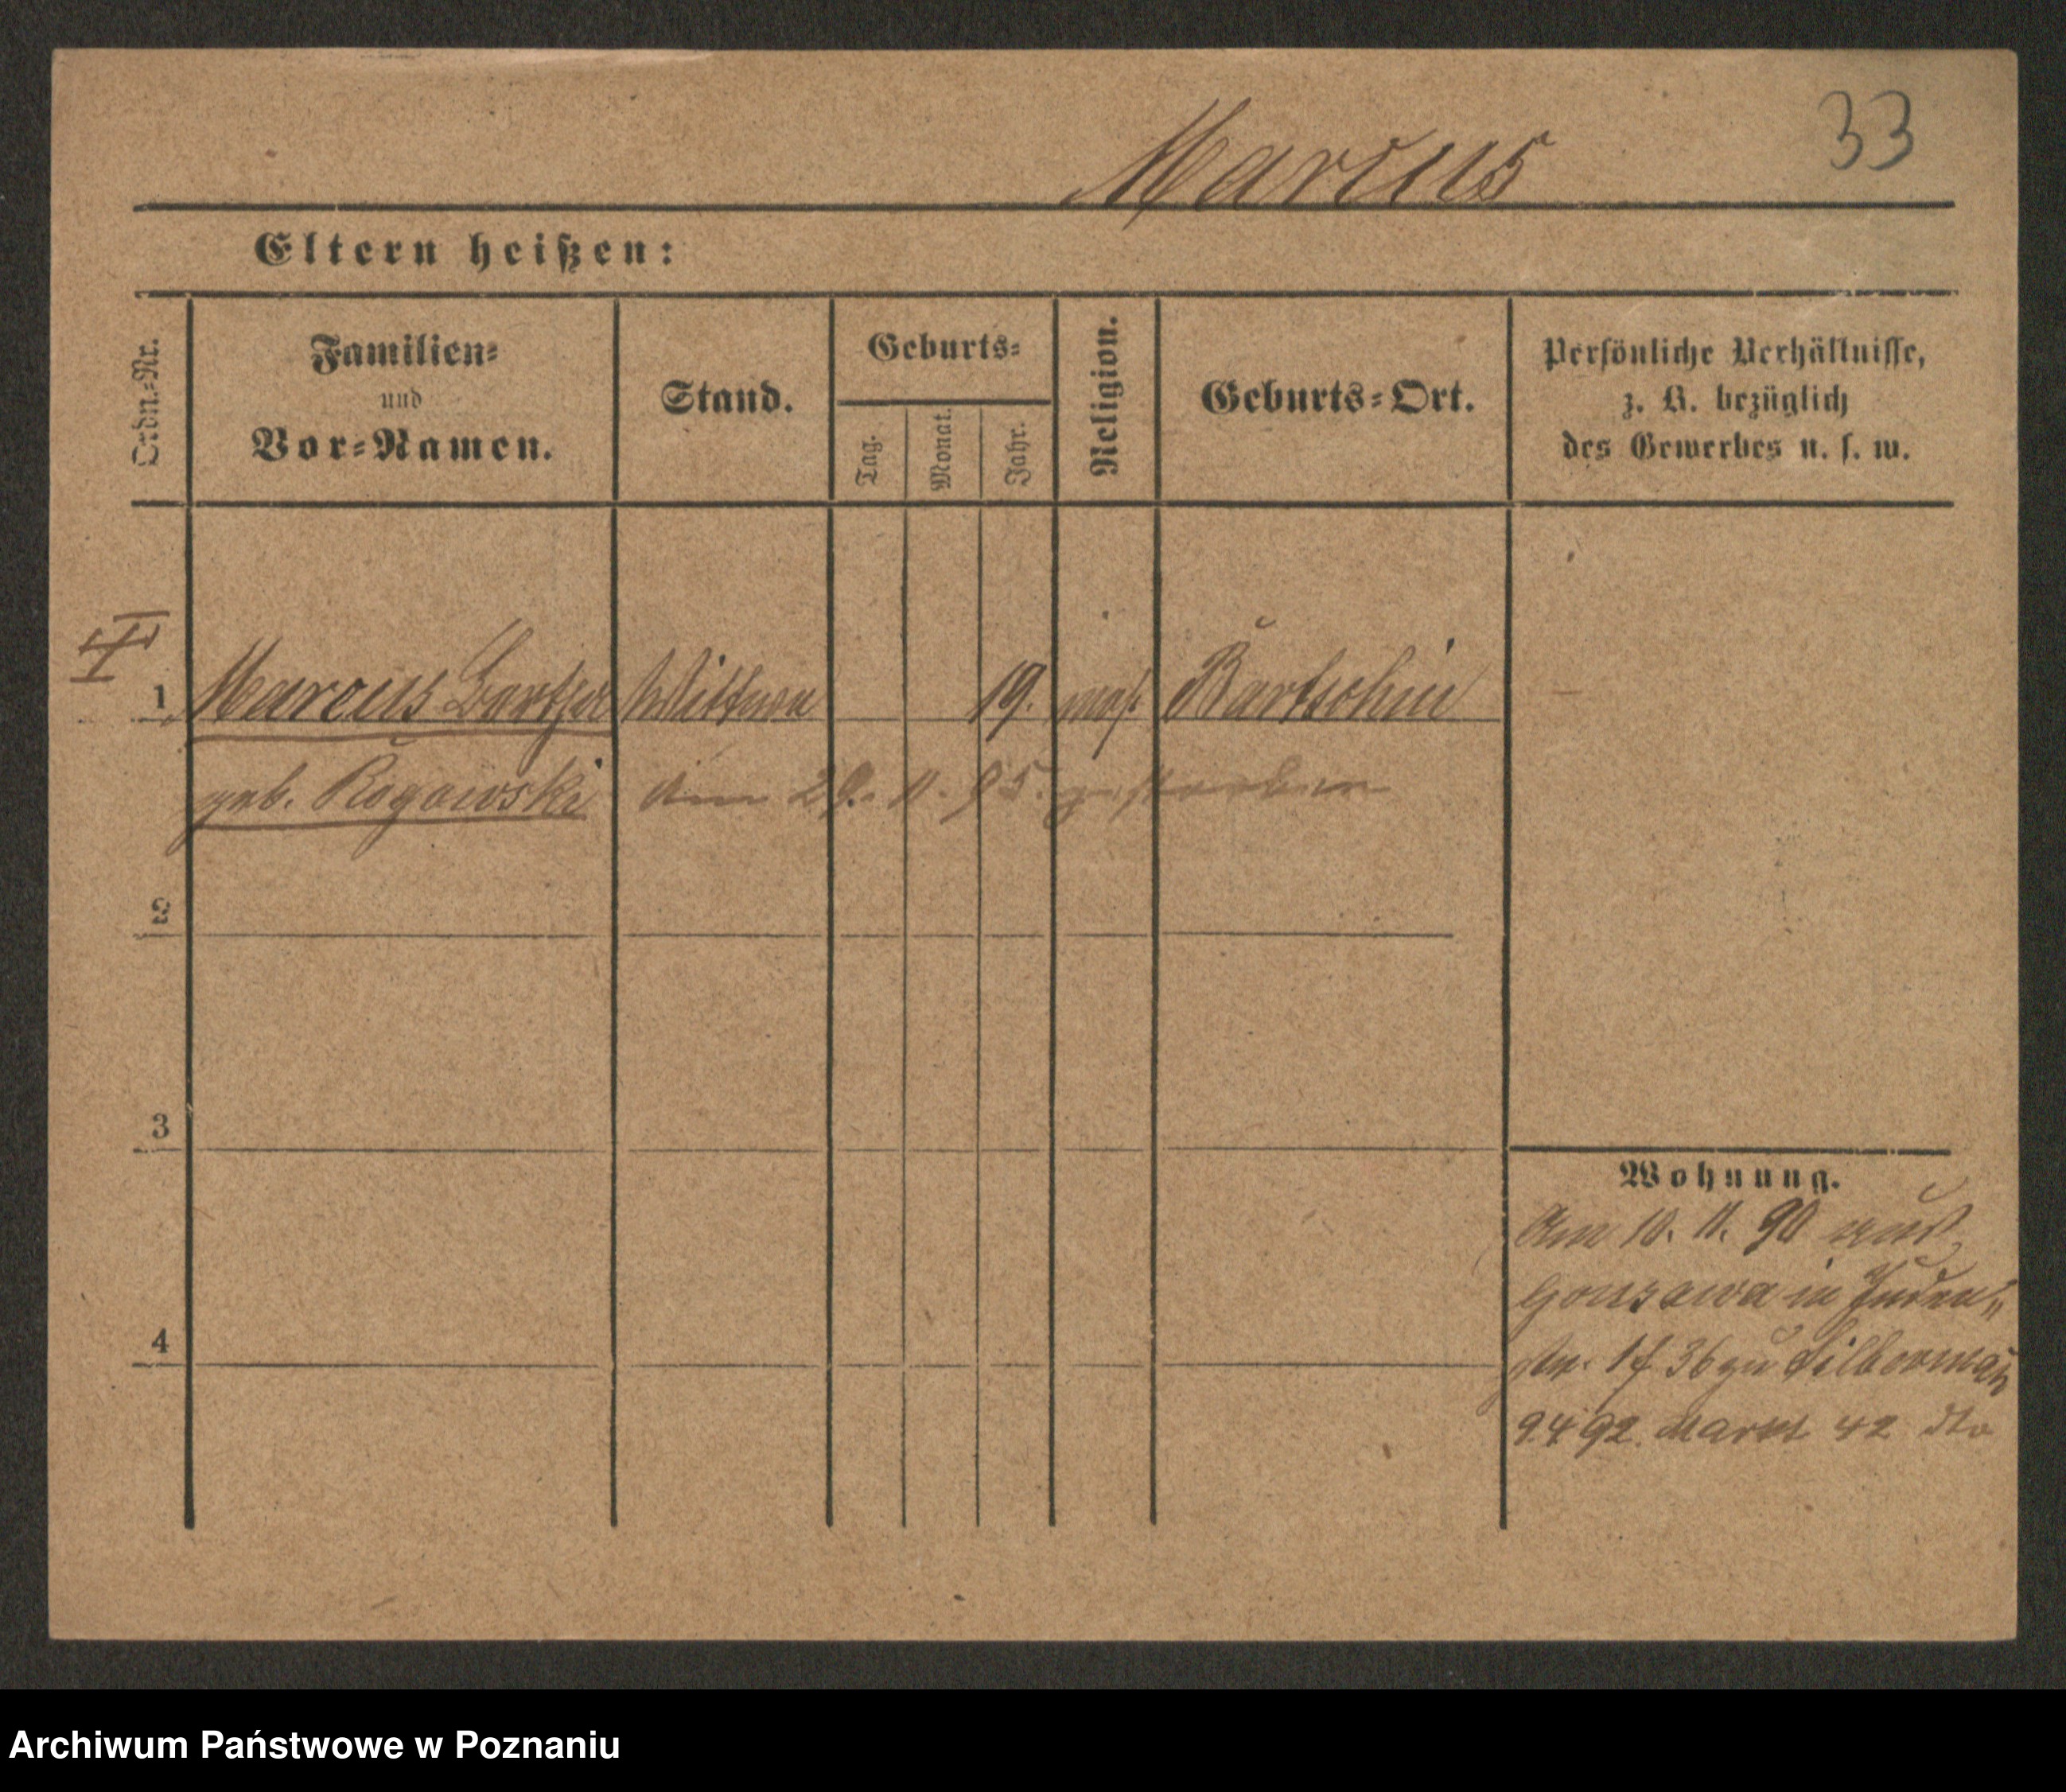 33
Marcus
Eltern heißen:
Ordn.-Nr.
Familien-
und
Vor-Namen.
Stand.
Geburts-
Tag.
Monat.
Jahr.
Religion.
Geburts-Ort.
Persönliche Verhältnisse,
z. B. bezüglich
des Gewerbes u. s. w.
1 Marcus Wittwe 19. mos. Bartschin
geb. Rogowski am 29. 11. 95. gestorben
2
3
4
Wohnung.
Am 10. 11. 90 aus
Gonsawa in Juden-
str. 36 zu Silbermann
9.4.92. Markt 42 dto
Archiwum Państwowe w Poznaniu